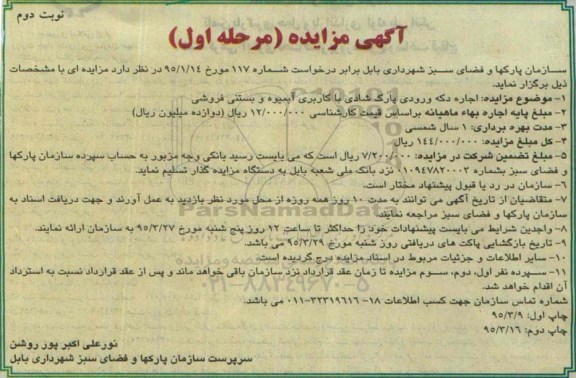 نوبت دوم
آگهی مزایده (مرحله اول)
سازمان پارکها و فضای سبز شهرداری بابل برابر درخواست شماره ۱۱۷ مورخ ۹۵/۱/۱۴ در نظر دارد مزایده ای با مشخصات
ذیل برگزار نماید.
۱- موضوع مزایده: اجاره دکه ورودی پارک شادی با کاربری آبمیوه و بستنی فروشی
۲- مبلغ پایه اجاره بهاء ماهیانه براساس قیمت کارشناسی ۱۲/۰۰۰/۰۰۰ ریال (دوازده میلیون ریال)
۳- مدت بهره برداری: ۱ سال شمسی
۴- کل مبلغ مزایده: ۱۴۴/۰۰۰/۰۰۰ ریال
۵- مبلغ تضمین شرکت در مزایده: ۷/۲۰۰/۰۰۰ ریال است که می بایست رسید بانکی وجه مزبور به حساب سپرده سازمان پارکها
و فضای سبز بشماره ۰۱۰۹۴۷۸۲۰۰۰۳ نزد بانک ملی شعبه بابل به دستگاه مزایده گذار تسلیم نماید.
۶- سازمان در رد یا قبول پیشنهاد مختار است.
۷- متقاضیان از تاریخ آگهی می توانند به مدت ۱۰ روز همه روزه از محل مورد نظر بازدید به عمل آورند و جهت دریافت اسناد به
سازمان پارکها و فضای سبز مراجعه نمایند.
۸- واجدین شرایط می بایست پیشنهادات خود را حداکثر تا ساعت ۱۲ روز پنج شنبه مورخ ۹۵/۳/۲۷ به سازمان ارائه نمایند.
۹- تاریخ بازگشایی پاکت های دریافتی روز شنبه مورخ ۹۵/۳/۲۹ می باشد.
۱۰- سایر اطلاعات و جزئیات مربوط در اسناد مزایده درج گردیده است.
۱۱- سپرده نفر اول، دوم، سوم مزایده تا زمان عقد قرارداد نزد سازمان باقی خواهد ماند و پس از عقد قرارداد نسبت به استرداد
آن اقدام خواهد شد.
شماره تماس سازمان جهت کسب اطلاعات ۱۸- ۳۲۳۱۹۶۱۶-۰۱۱ می باشد.
چاپ اول: ۹۵/۳/۹
چاپ دوم: ۹۵/۳/۱۶
نورعلی اکبر پور روشن
سرپرست سازمان پارکها و فضای سبز شهرداری بابل
ParsNamadData
۰۲۱-۸۸۳۴۹۶۷۰-۵